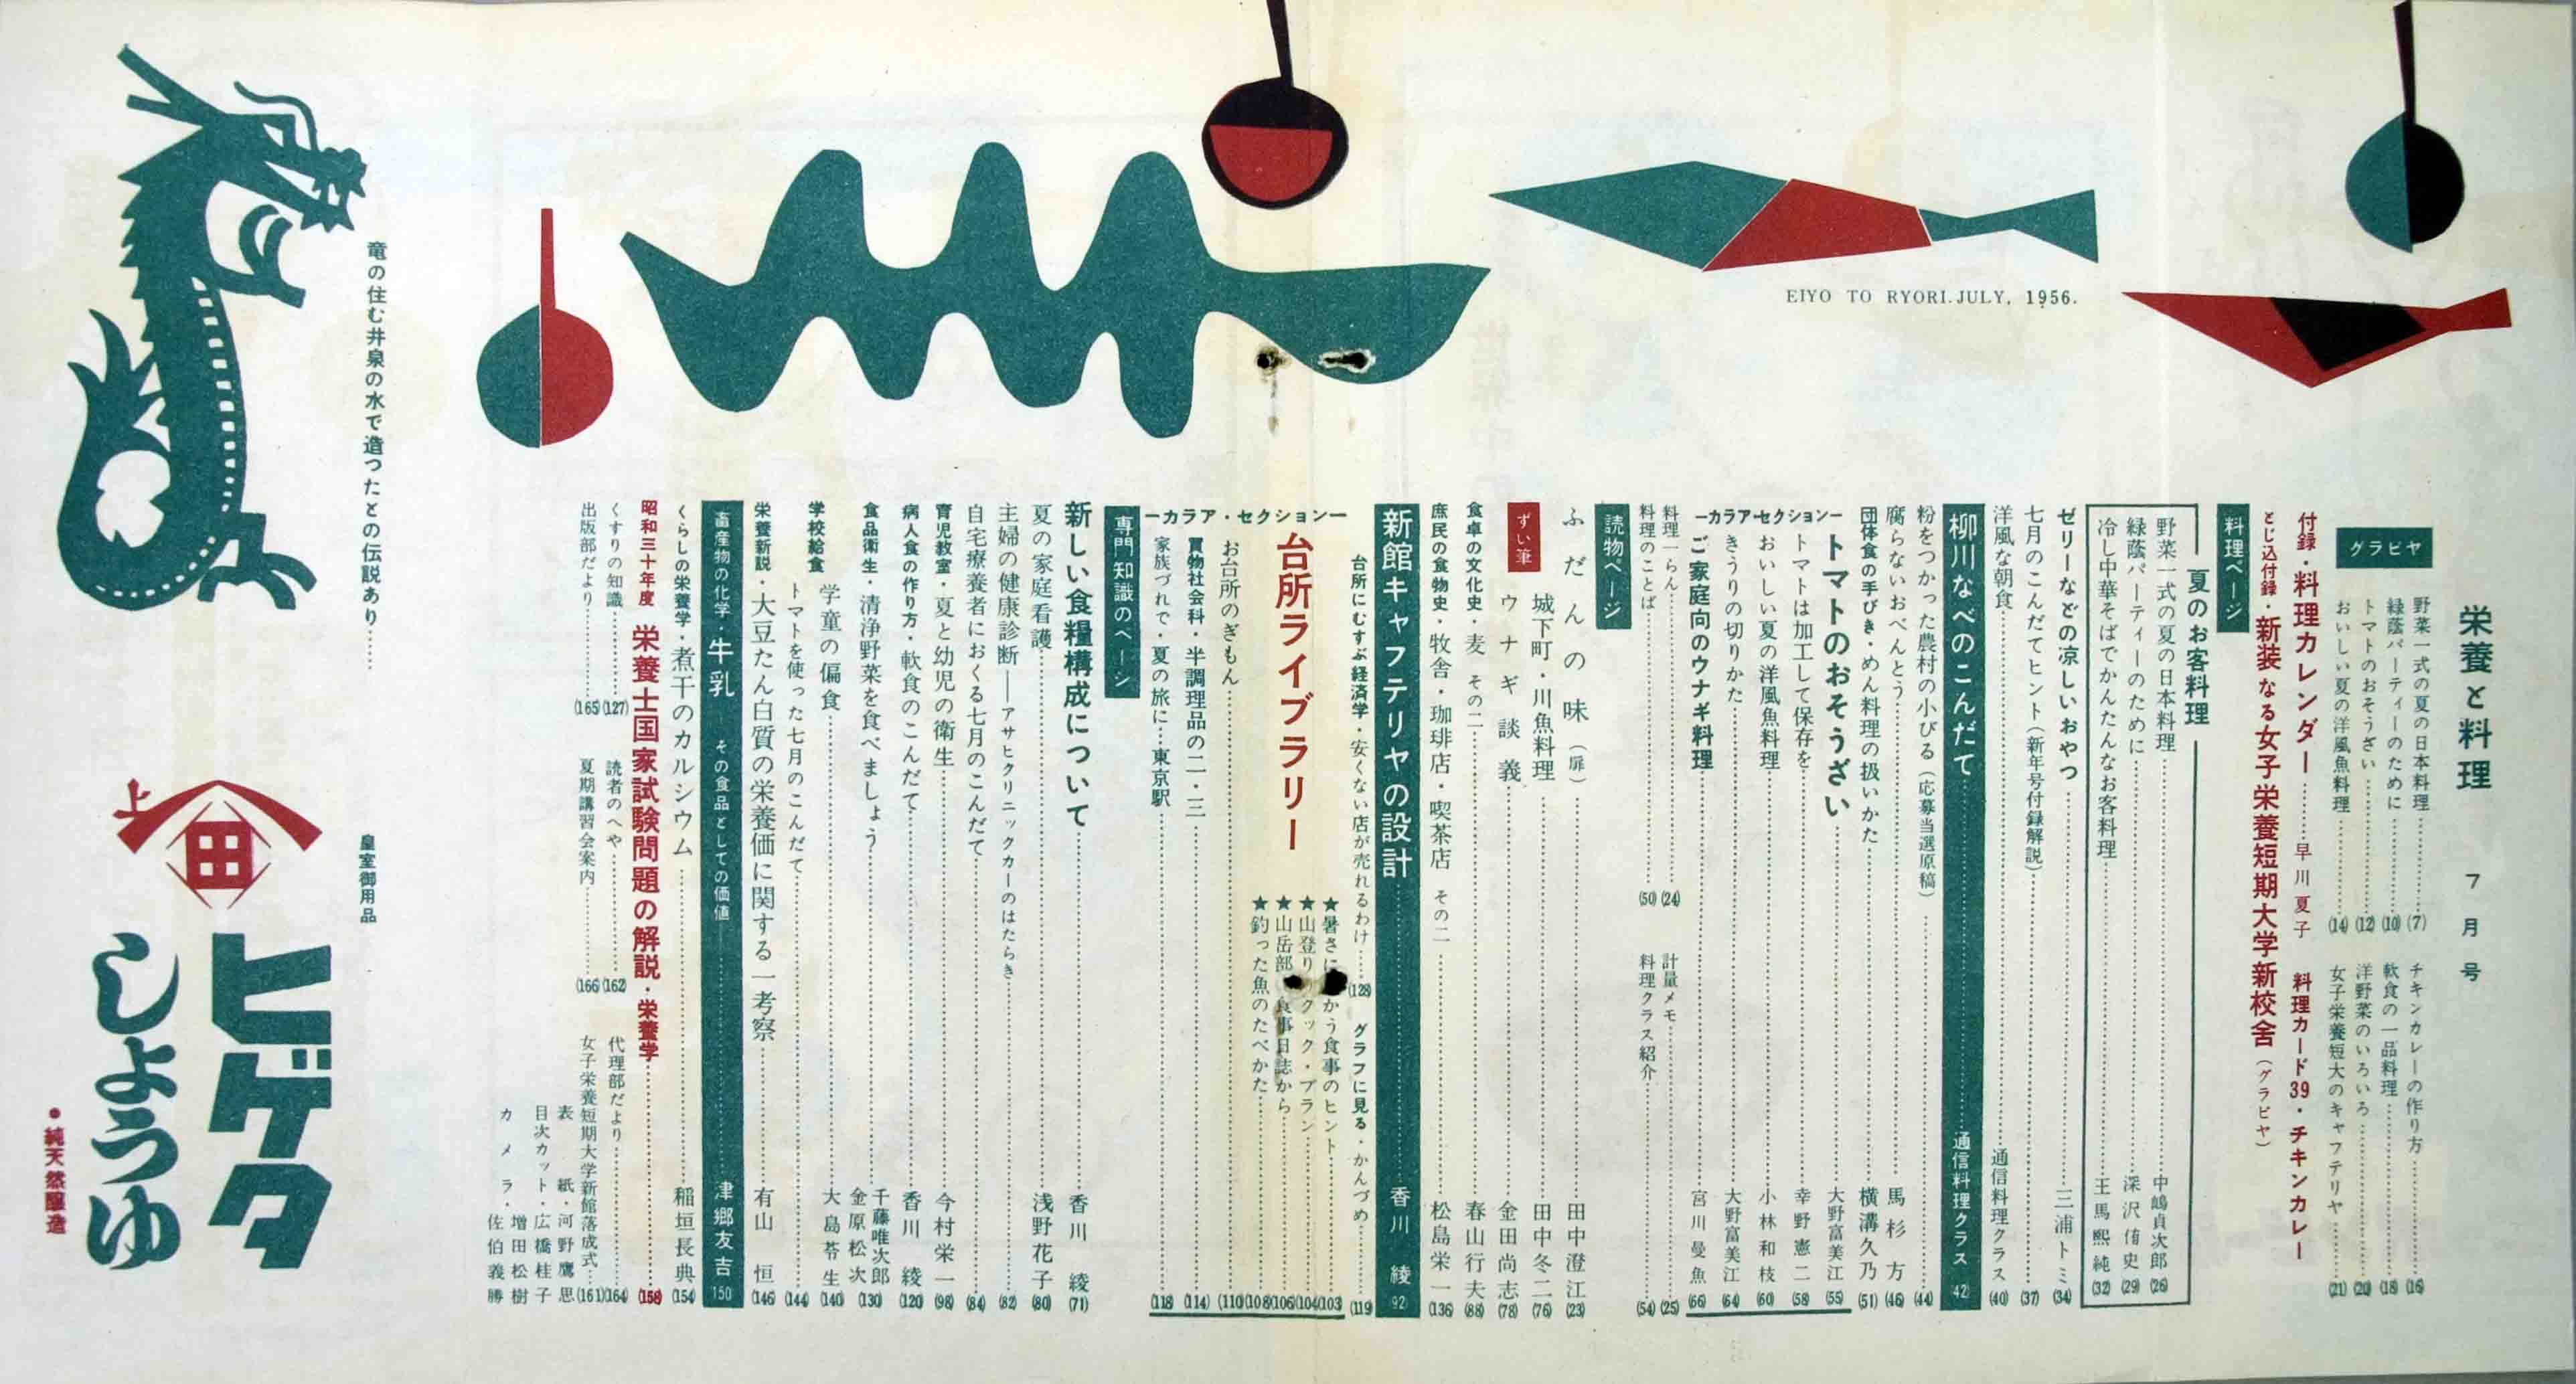 EIYO TO RYORI. JULY, 1956.
栄養と料理 7月号
グラビヤ
野菜一式の夏の日本料理……(7)
緑蔭パーティーのために……(10)
トマトのおそうざい……(12)
おいしい夏の洋風魚料理……(14)
チキンカレーの作り方……(16)
軟食の一品料理……(18)
洋野菜のいろいろ……(20)
女子栄養短大のキャフテリヤ……(21)
付録・料理カレンダー……早川夏子 料理カード39・チキンカレー
とじ込付録・新装なる女子栄養短期大学新校舎(グラビヤ)
料理ページ
夏のお客料理
野菜一式の夏の日本料理……中嶋貞次郎(26)
緑蔭パーティーのために……深沢侑史(29)
冷し中華そばでかんたんなお客料理……王馬熙純(32)
ゼリーなどの凉しいおやつ……三浦トミ(34)
七月のこんだてヒント(新年号付録解説)……(37)
洋風な朝食……通信料理クラス(40)
柳川なべのこんだて……通信料理クラス 42
粉をつかった農村の小びる(応募当選原稿)……(44)
腐らないおべんとう……馬杉方(46)
団体食の手びき・めん料理の扱いかた……横溝久乃(51)
ーカラア・セクションー
トマトのおそうざい……大野富美江(55)
トマトは加工して保存を……幸野憲二(58)
おいしい夏の洋風魚料理……小林和枝(60)
きうりの切りかた……大野富美江(64)
ご家庭向のウナギ料理……宮川曼魚(66)
料理一らん……(24)
計量メモ……(25)
料理のことば……(50)
料理クラス紹介……(54)
読物ページ
ふだんの味(扉)……田中澄江(23)
城下町・川魚料理……田中冬二(76)
ずい筆
ウナギ談義……金田尚志(78)
食卓の文化史・麦 その二……春山行夫(88)
庶民の食物史・牧舎・珈琲店・喫茶店 その二……松島栄一(136)
新館キャフテリヤの設計……香川綾 92
台所にむすぶ経済学・安くない店が売れるわけ……(128)
グラフに見る・かんづめ……(119)
ーカラア・セクションー
台所ライブラリー
★暑さに かう食事のヒント……(103)
★山登り クック・プラン……(104)
★山岳部 食事日誌から……(106)
★釣った魚のたべかた……(108)
お台所のぎもん……(110)
買物社会科・半調理品の二・三……(114)
家族づれで・夏の旅に・東京駅……(118)
専門知識のページ
新しい食糧構成について……香川綾(71)
夏の家庭看護……浅野花子(80)
主婦の健康診断―アサヒクリニックカーのはたらき……(82)
自宅療養者におくる七月のこんだて……(84)
育児教室・夏と幼児の衛生……今村栄一(98)
病人食の作り方・軟食のこんだて……香川綾(120)
食品衛生・清浄野菜を食べましょう……千藤唯次郎 金原松次(130)
学校給食
学童の偏食……大島苓生(140)
トマトを使った七月のこんだて……(144)
栄養新説・大豆たん白質の栄養価に関する一考察……有山恒(146)
畜産物の化学・牛乳 その食品としての価値……津郷友吉 150
くらしの栄養学・煮干のカルシウム……稲垣長典(154)
昭和三十年度 栄養士国家試験問題の解説・栄養学……(158)
くすりの知識……(127)
読者のへや……(162)
代理部だより……(164)
出版部だより……(165)
夏期講習会案内……(166)
女子栄養短期大学新館落成式……(161)
表紙・河野鷹思
目次カット・広橋桂子
カメラ・増田松樹
佐伯義勝
竜の住む井泉の水で造つたとの伝説あり……
皇室御用品
上
田
ヒゲタ
しょうゆ
●純天然醸造